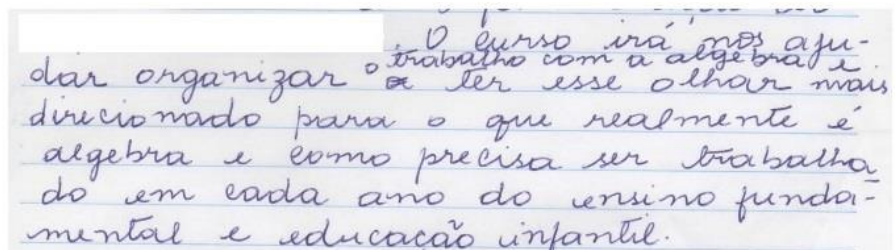 O curso irá nos aju-
dar organizar o trabalho com a algebra e
ter esse olhar mais
direcionado para o que realmente é
algebra e como precisa ser trabalha
do em cada ano do ensino funda-
mental e educacação infantil.